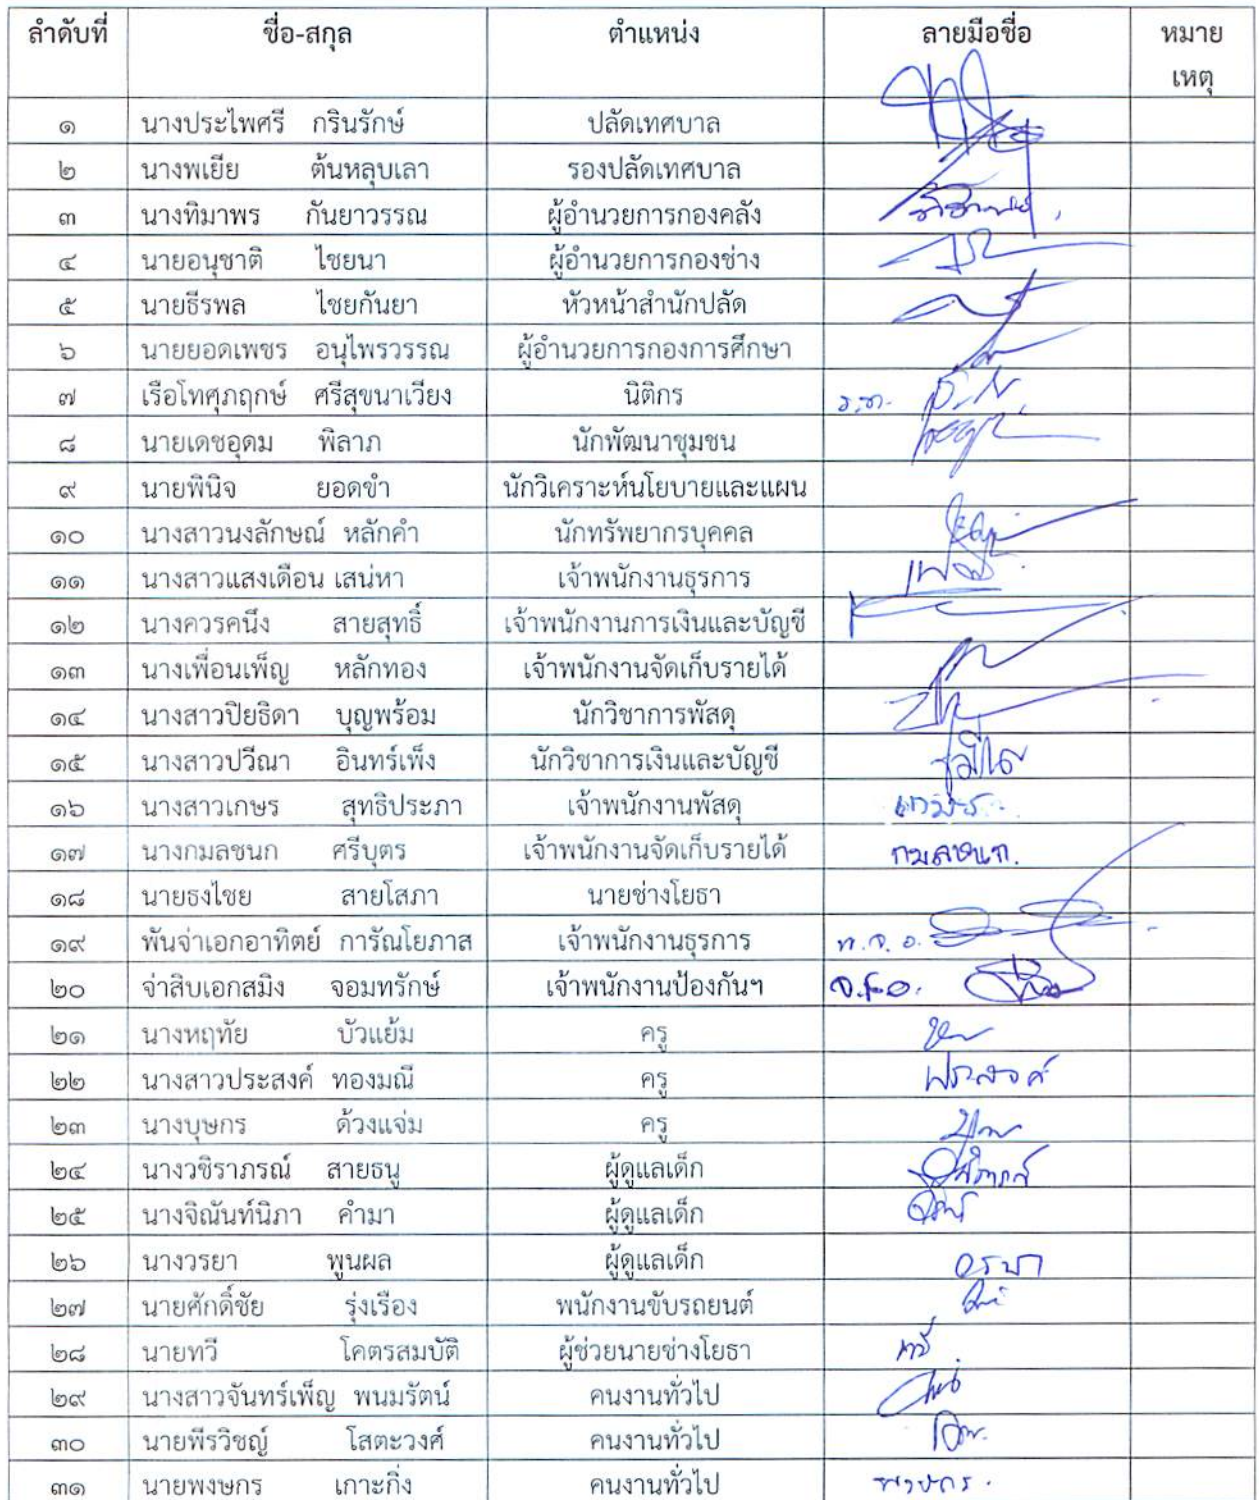 ลำดับที่ ชื่อ-สกุล ตำแหน่ง ลายมือชื่อ หมาย
เหตุ
๑ นางประไพศรี กรินรักษ์ ปลัดเทศบาล
๒ นางพเยีย ต้นหลุบเลา รองปลัดเทศบาล
๓ นางทิมาพร กันยาวรรณ ผู้อำนวยการกองคลัง
๔ นายอนุชาติ ไชยนา ผู้อำนวยการกองช่าง
๕ นายธีรพล ไชยกันยา หัวหน้าสำนักปลัด
๖ นายยอดเพชร อนุไพรวรรณ ผู้อำนวยการกองการศึกษา
๗ เรือโทศุภฤกษ์ ศรีสุขนาเวียง นิติกร
๘ นายเดชอุดม พิลาภ นักพัฒนาชุมชน
๙ นายพินิจ ยอดขำ นักวิเคราะห์นโยบายและแผน
๑๐ นางสาวนงลักษณ์ หลักคำ นักทรัพยากรบุคคล
๑๑ นางสาวแสงเดือน เสน่หา เจ้าพนักงานธุรการ
๑๒ นางควรคนึง สายสุทธิ์ เจ้าพนักงานการเงินและบัญชี
๑๓ นางเพื่อนเพ็ญ หลักทอง เจ้าพนักงานจัดเก็บรายได้
๑๔ นางสาวปิยธิดา บุญพร้อม นักวิชาการพัสดุ
๑๕ นางสาวปวีณา อินทร์เพ็ง นักวิชาการเงินและบัญชี
๑๖ นางสาวเกษร สุทธิประภา เจ้าพนักงานพัสดุ
๑๗ นางกมลชนก ศรีบุตร เจ้าพนักงานจัดเก็บรายได้ กมลชนก.
๑๘ นายธงไชย สายโสภา นายช่างโยธา
๑๙ พันจ่าเอกอาทิตย์ การัณโยภาส เจ้าพนักงานธุรการ พ.จ.อ.
๒๐ จ่าสิบเอกสมิง จอมทรักษ์ เจ้าพนักงานป้องกันฯ จ.ส.อ.
๒๑ นางหฤทัย บัวแย้ม ครู
๒๒ นางสาวประสงค์ ทองมณี ครู ประสงค์
๒๓ นางบุษกร ด้วงแจ่ม ครู
๒๔ นางวชิราภรณ์ สายธนู ผู้ดูแลเด็ก
๒๕ นางจิณันท์นิภา คำมา ผู้ดูแลเด็ก
๒๖ นางวรยา พูนผล ผู้ดูแลเด็ก วรยา
๒๗ นายศักดิ์ชัย รุ่งเรือง พนักงานขับรถยนต์
๒๘ นายทวี โคตรสมบัติ ผู้ช่วยนายช่างโยธา ทวี
๒๙ นางสาวจันทร์เพ็ญ พนมรัตน์ คนงานทั่วไป
๓๐ นายพีรวิชญ์ โสตะวงศ์ คนงานทั่วไป
๓๑ นายพงษกร เกาะกิ่ง คนงานทั่วไป พงษกร.